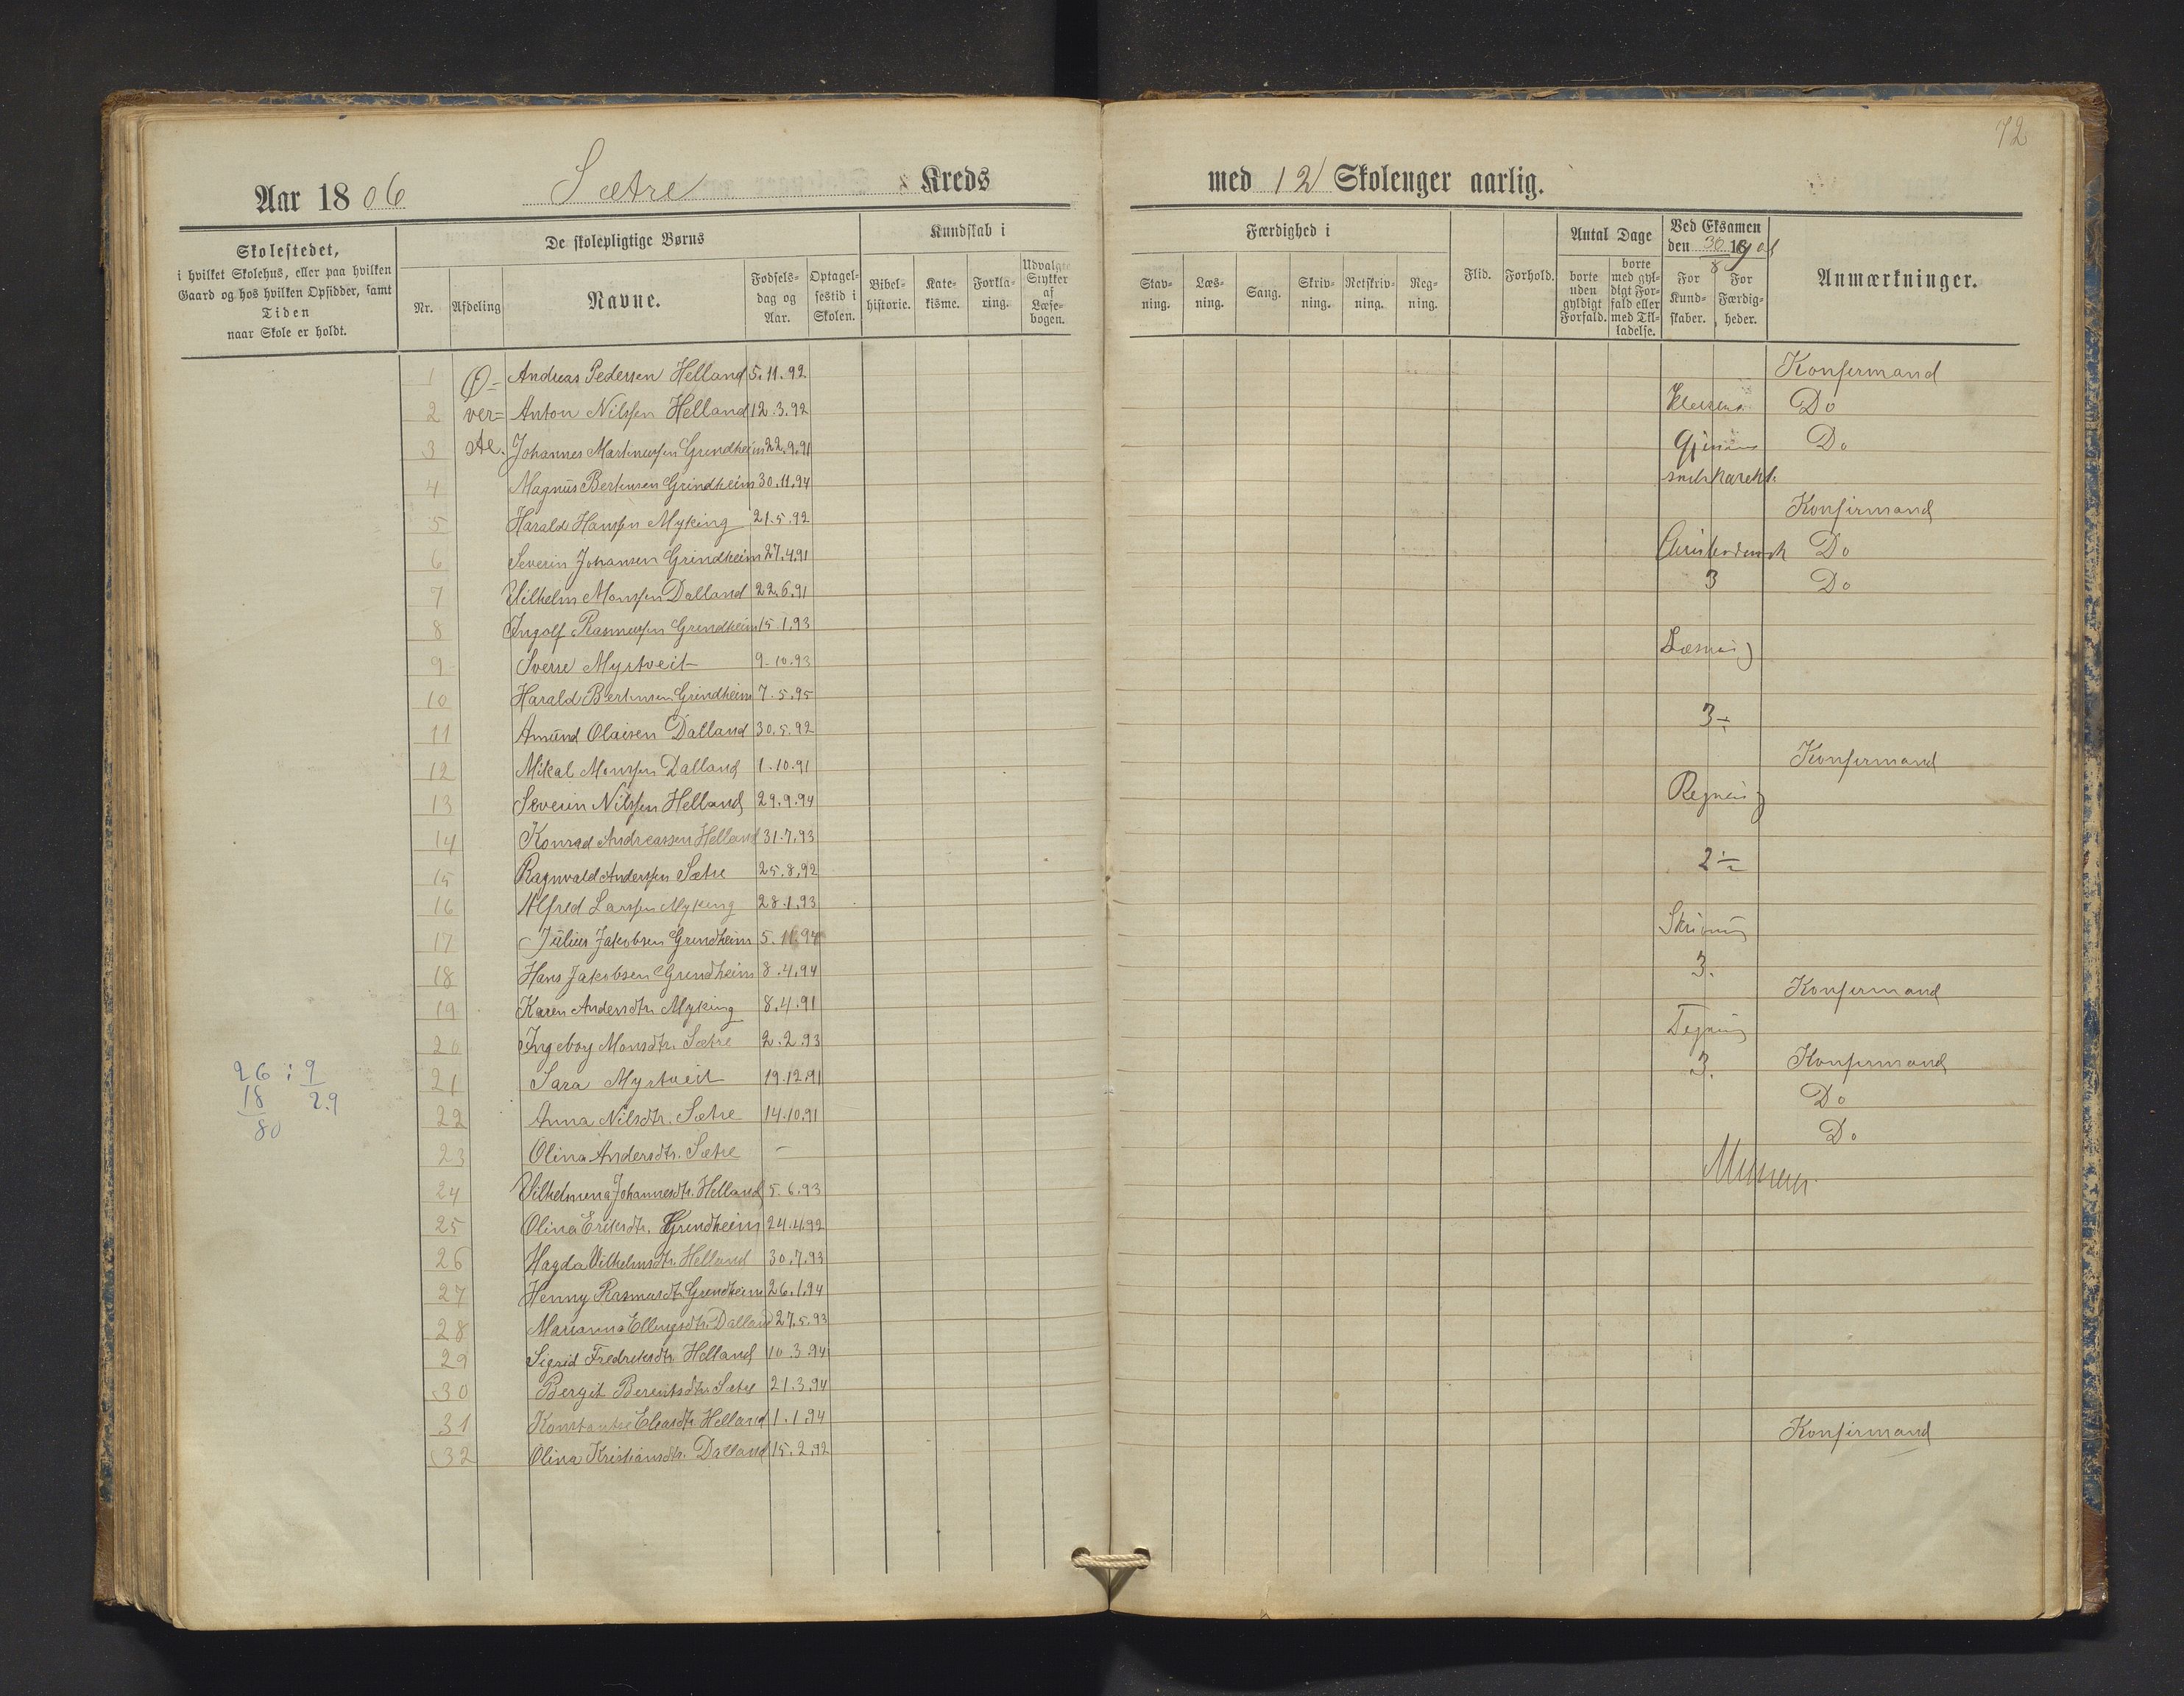 72
Aar 1806 Sætre Kreds med 12 Skoleuger aarlig.
Skolestedet,
i hvilket Skolehus, eller paa hvilken
Gaard og hos hvilken Opsidder, samt
Tiden
naar Skole er holdt.
De skolepligtige Børns
Nr. Afdeling Navne. Fødselsdag og Aar. Optagelsestid i Skolen.
Kundskab i
Bibelhistorie. Katekisme. Forklaring. Udvalgte Stykker af Læsebogen.
Færdighed i
Stavning. Læsning. Sang. Skrivning. Retskrivning. Regning.
Flid. Forhold.
Antal Dage
borte uden gyldigt Forfald. borte med gyldigt Forfald eller med Tilladelse.
Ved Eksamen
den 30/8
For Kundskaber. For Færdigheder.
Anmærkninger.
Øverste.
1 Andreas Pedersen Helland 5.11.92 Konfirmand
2 Anton Nilssen Helland 12.3.92 Klassens Do
3 Johannes Martinussen Grindheim 22.9.91 Gjennem Do
4 Magnus Bertinsen Grindheim 30.11.94 snitskarakt.
5 Harald Hanssen Myking 21.5.92 Konfirmand
6 Severin Johansen Grindheim 27.4.91 Do
7 Vilhelm Monssen Dalland 22.6.91 3 Do
8 Ingolf Rasmussen Grindheim 15.1.93
9 Sverre Myrtveit 9-10.93 Læsning
10 Harald Bertinsen Grindheim 7.5.95
11 Amund Olaisen Dalland 30.5.92 3-
12 Mikal Monssen Dalland 1.10.91 Konfirmand
13 Severin Nilssen Helland 29.9.94 Regning
14 Konrad Andreassen Helland 31.7.93
15 Ragnvald Anderssen Sætre 25.8.92 2
16 Alfred Larssen Myking 28.1.93
17 Julius Jakobsen Grindheim 5.11.94 Skrivning
18 Hans Jakobsen Grindheim 8.4.94 3.
19 Karen Andersdtr. Myking 8.4.91 Konfirmand
20 Ingeborg Monsdtr. Sætre 2.2.93 Tegning
21 Sara Myrtveit 19.12.91 3. Konfirmand
22 Anna Nilsdtr. Sætre 14.10.91 Do
23 Olina Andersdtr. Sætre - Do
24 Vilhelmina Johannesdtr. Helland 5.6.93
25 Olina Eriksdtr. Grindheim 24.4.92
26 Magda Vilhelmsdtr. Helland 30.7.93
27 Henny Rasmusdtr. Grindheim 26.1.94
28 Marianna Ellingsdtr. Dalland 27.5.93
29 Sigrid Fredriksdtr. Helland 10.3.94
30 Bergit Berentsdtr. Sætre 21.3.94
31 Helland 1.1.94
32 Olina Kristiansdtr. Dalland 15.2.92 Konfirmand
26 : 9
18 2.9
80